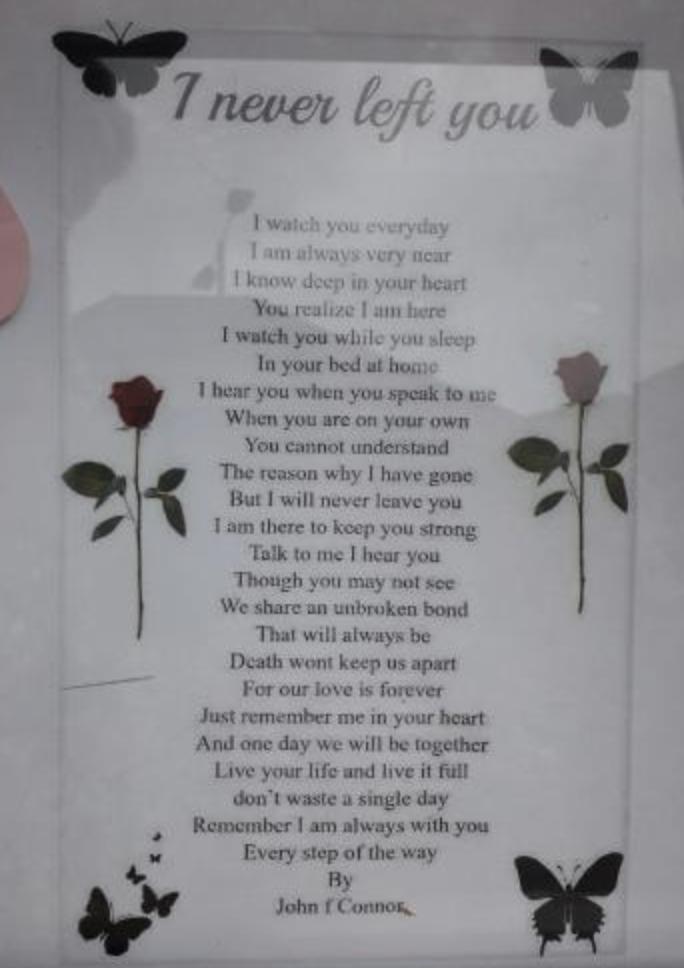 I never left you
I watch you everyday
I am always very near
I know deep in your heart
You realize I am here
I watch you while you sleep
In your bed at home
I hear you when you speak to me
When you are on your own
You cannot understand
The reason why I have gone
But I will never leave you
I am there to keep you strong
Talk to me I hear you
Though you may not see
We share an unbroken bond
That will always be
Death wont keep us apart
For our love is forever
Just remember me in your heart
And one day we will be together
Live your life and live it full
don't waste a single day
Remember I am always with you
Every step of the way
By
John f Connor